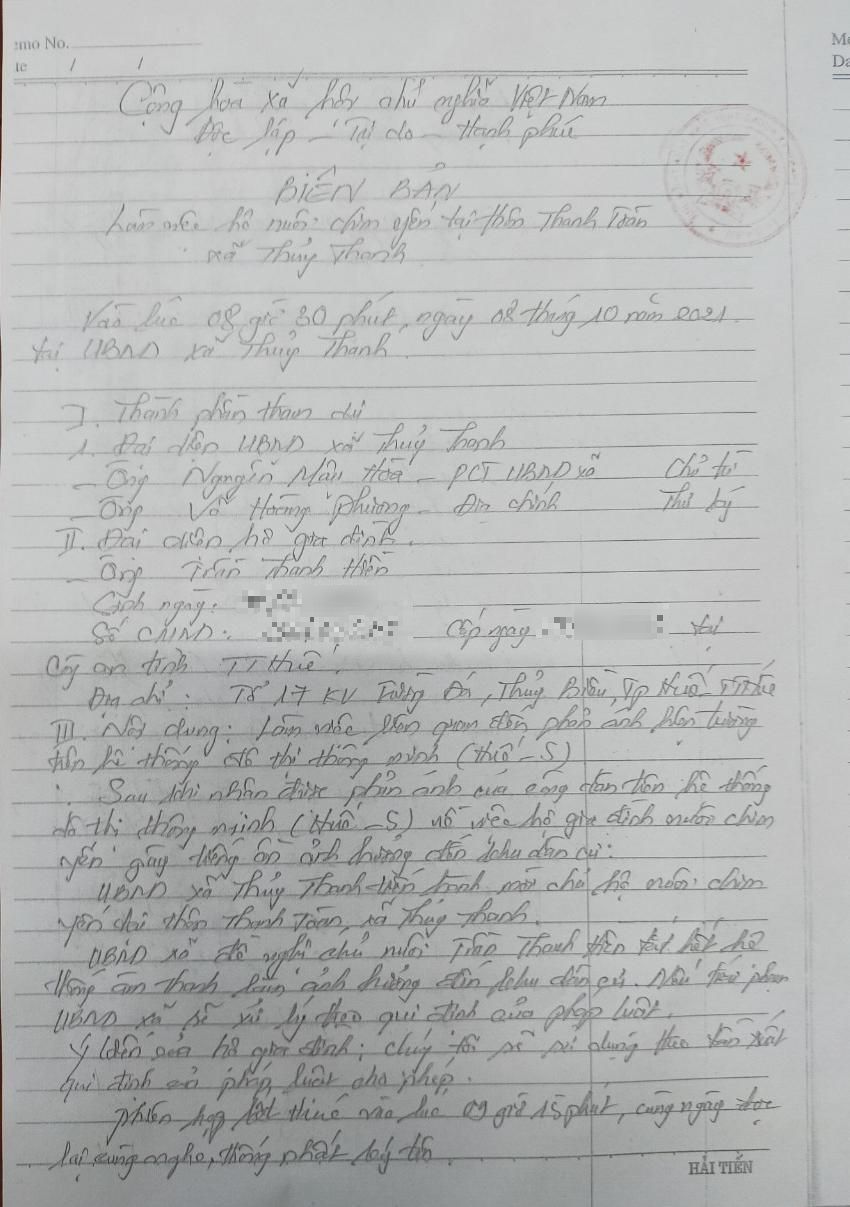 emo No.
te / /
Cộng hoà xã hội chủ nghĩa Việt Nam
Độc lập - Tự do - Hạnh phúc
BIÊN BẢN
Làm việc hộ nuôi chim yến tại thôn Thanh Toàn
xã Thủy Thanh
Vào lúc 08 giờ 30 phút, ngày 08 tháng 10 năm 2021.
tại UBND xã Thủy Thanh.
I. Thành phần tham dự
1. Đại diện UBND xã Thủy Thanh
- Ông Nguyễn Mậu Hoà - PCT UBND xã Chủ trì
- Ông Võ Hoàng Phương - Địa chính Thư ký
II. Đại diện hộ gia đình.
- Ông Trần Thanh Hiền
Sinh ngày:
Số CMND: Cấp ngày tại
Công an tỉnh TT Huế.
Địa chỉ: Tổ 17 KV Trường Đá, Thủy Biều, Tp Huế TT Huế
III. Nội dung: Làm việc liên quan đến phản ánh hiện trường
trên hệ thống đô thị thông minh (Huế-S)
Sau khi nhận được phản ánh của công dân trên hệ thống
đô thị thông minh (Huế-S) về việc hộ gia đình nuôi chim
yến gây tiếng ồn ảnh hưởng đến khu dân cư.
UBND xã Thủy Thanh tiến hành mời chủ hộ nuôi chim
yến tại thôn Thanh Toàn, xã Thủy Thanh.
UBND xã đề nghị chủ nuôi Trần Thanh Hiền tắt hết hệ
thống âm thanh làm ảnh hưởng đến khu dân cư. Nếu tái phạm
UBND xã sẽ xử lý theo qui định của pháp luật.
Ý kiến của hộ gia đình: chúng tôi sẽ sử dụng theo tần suất
qui định của pháp luật cho phép.
Phiên họp kết thúc vào lúc 09 giờ 15 phút, cùng ngày đọc
lại cùng nghe, thống nhất ký tên.
HẢI TIẾN
M
Da